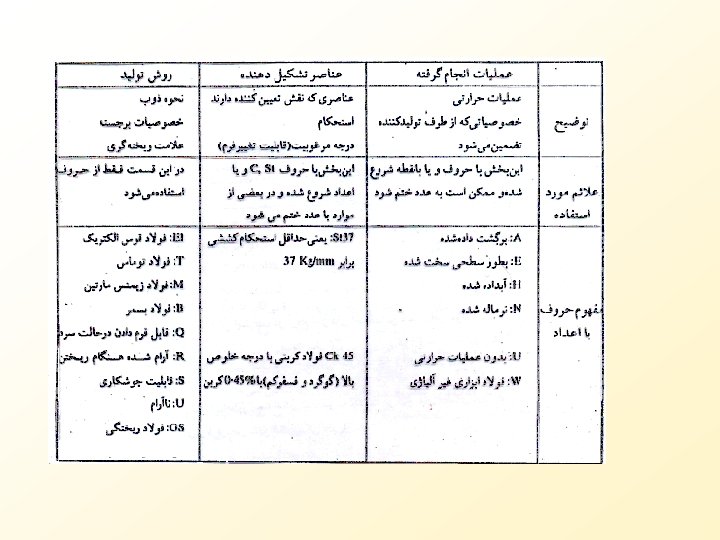 عملیات انجام گرفته
عناصر تشکیل دهنده
روش تولید
توضیح
عملیات حرارتی
خصوصیاتی‌که از طرف تولیدکننده
تضمین‌می‌شود
عناصری که نقش تعیین‌کننده دارند
استحکام
درجه مرغوبیت(قابلیت تغییرفرم)
نحوه ذوب
خصوصیات برجسته
علامت ریخته‌گری
علائم مورد
استفاده
این‌بخش با حروف و یا بانقطه شروع
شده‌و ممکن است به عدد ختم شود
این‌بخش‌با حروف C, St و یا
اعداد شروع شده و در بعضی از
موارد با عدد ختم می شود
در این قسمت فقط از حروف
استفاده‌می‌شود
مفهوم‌حروف
با اعداد
A: برگشت داده‌شده
E: بطور سطحی سخت شده
H: آبداده شده
N: نرماله شده
U: بدون عملیات حرارتی
W: فولاد ابزاری غیر آلیاژی
St37: یعنی‌حداقل استحکام‌کششی
برابر 37 Kg/mm
Ck 45 فولادکربنی با درجه خلوص
بالا (گوگرد و فسفرکم)با%0-45کربن
El: فولاد قوس الکتریک
T: فولاد توماس
M: فولاد زیمنس مارتین
B: فولاد بسمر
Q: قابل فرم دادن درحالت سرد
R: آرام شده هنگام ریختن
S: قابلیت جوشکاری
U: ناآرام
GS: فولاد ریختگی